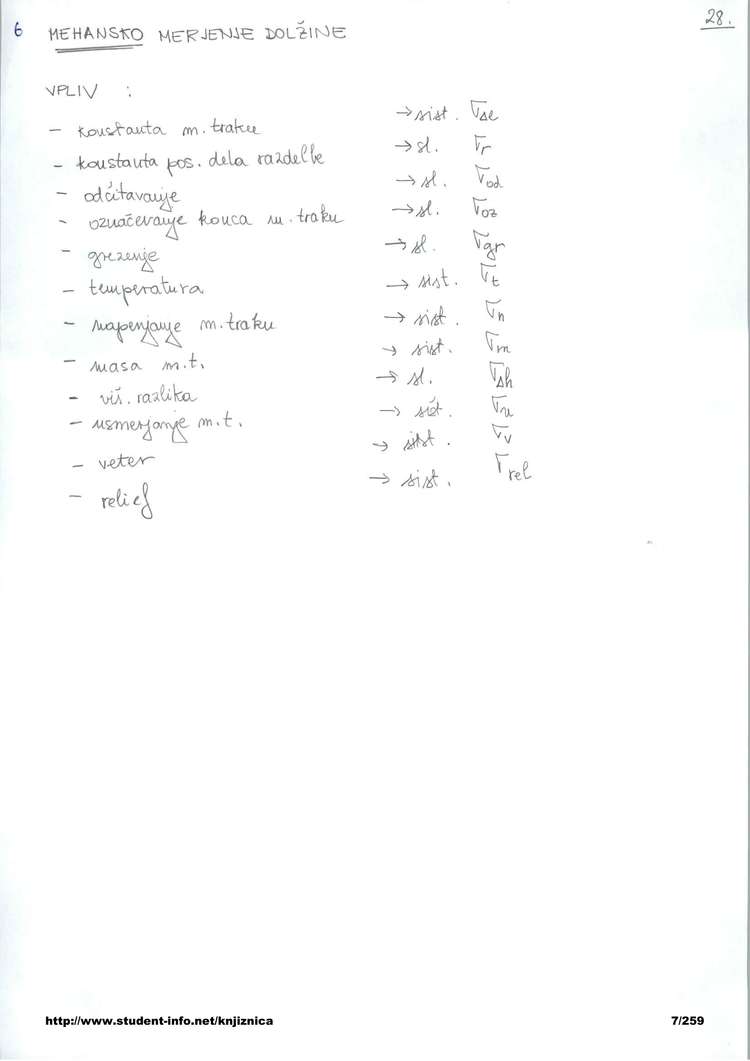 6 MEHANSKO MERJENJE DOLŽINE 28.
VPLIV :
- konstanta m. traku → sist. ∇Δe
- konstanta pos. dela razdelbe → sl. ∇r
- odčitavanje → sl. ∇od
- označevanje konca m. traku → sl. ∇oz
- grezenje → sl. ∇gr
- temperatura → sist. ∇t
- napenjanje m. traku → sist. ∇n
- masa m.t. → sist. ∇m
- viš. razlika → sl. ∇Δh
- usmerjanje m.t. → sist. ∇u
- veter → sist. ∇v
- relief → sist. ∇rel
http://www.student-info.net/knjiznica 7/259